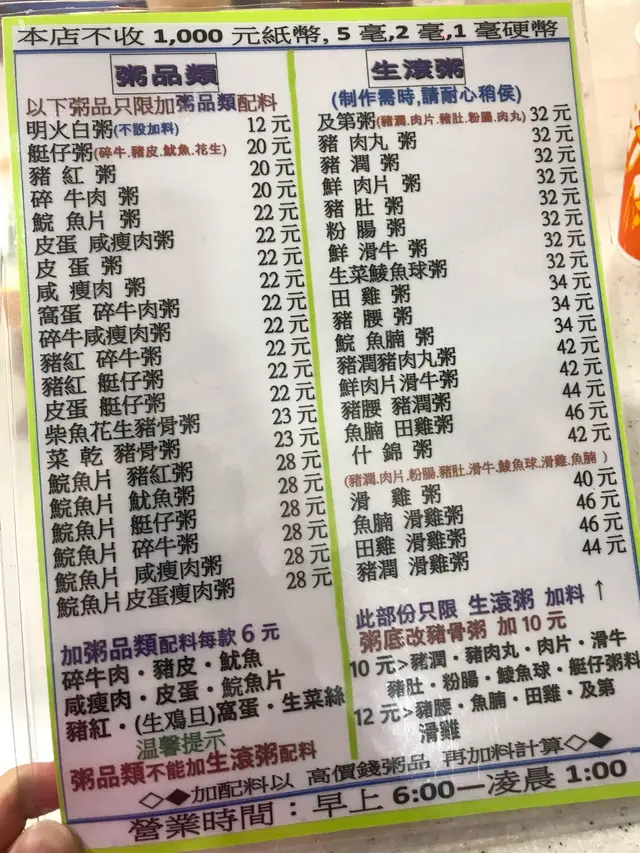 本店不收 1,000 元紙幣, 5 毫,2 毫,1 毫硬幣
粥品類
以下粥品只限加粥品類配料
明火白粥(不設加料) 12 元
艇仔粥(碎牛.豬皮.魷魚.花生) 20 元
豬 紅 粥 20 元
碎 牛肉 粥 20 元
鯇 魚片 粥 22 元
皮蛋 咸瘦肉粥 22 元
皮 蛋 粥 22 元
咸 瘦肉 粥 22 元
窩蛋 碎牛肉粥 22 元
碎牛咸瘦肉粥 22 元
豬紅 碎牛粥 22 元
豬紅 艇仔粥 22 元
皮蛋 艇仔粥 22 元
柴魚花生豬骨粥 23 元
菜 乾 豬骨粥 23 元
鯇魚片 豬紅粥 28 元
鯇魚片 魷魚粥 28 元
鯇魚片 艇仔粥 28 元
鯇魚片 碎牛粥 28 元
鯇魚片 咸瘦肉粥 28 元
鯇魚片皮蛋瘦肉粥 28 元
加粥品類配料每款 6 元
碎牛肉・豬皮・魷魚
咸瘦肉・皮蛋・鯇魚片
豬紅・(生鳮旦)窩蛋・生菜絲
温馨提示
粥品類不能加生滾粥配料
生滾粥
(制作需時,請耐心稍侯)
及第粥(豬潤.肉片.豬肚.粉腸.肉丸) 32 元
豬 肉丸 粥 32 元
豬 潤 粥 32 元
鮮 肉片 粥 32 元
豬 肚 粥 32 元
粉 腸 粥 32 元
鮮 滑牛 粥 32 元
生菜鯪魚球粥 32 元
田 雞 粥 34 元
豬 腰 粥 34 元
鯇 魚腩 粥 34 元
豬潤豬肉丸粥 42 元
鮮肉片滑牛粥 42 元
豬腰 豬潤粥 44 元
魚腩 田雞粥 46 元
什 錦 粥 42 元
(豬潤.肉片.粉腸.豬肚.滑牛.鯪魚球.滑雞.魚腩 )
滑 雞 粥 40 元
魚腩 滑雞粥 46 元
田雞 滑雞粥 46 元
豬潤 滑雞粥 44 元
此部份只限 生滾粥 加料 ↑
粥底改豬骨粥 加 10 元
10 元>豬潤・豬肉丸・肉片・滑牛
豬肚・粉腸・鯪魚球・艇仔粥料
12 元>豬腰・魚腩・田雞・及第
滑雞
◇◆加配料以 高價錢粥品 再加料計算◇◆
營業時間：早上 6:00—凌晨 1:00